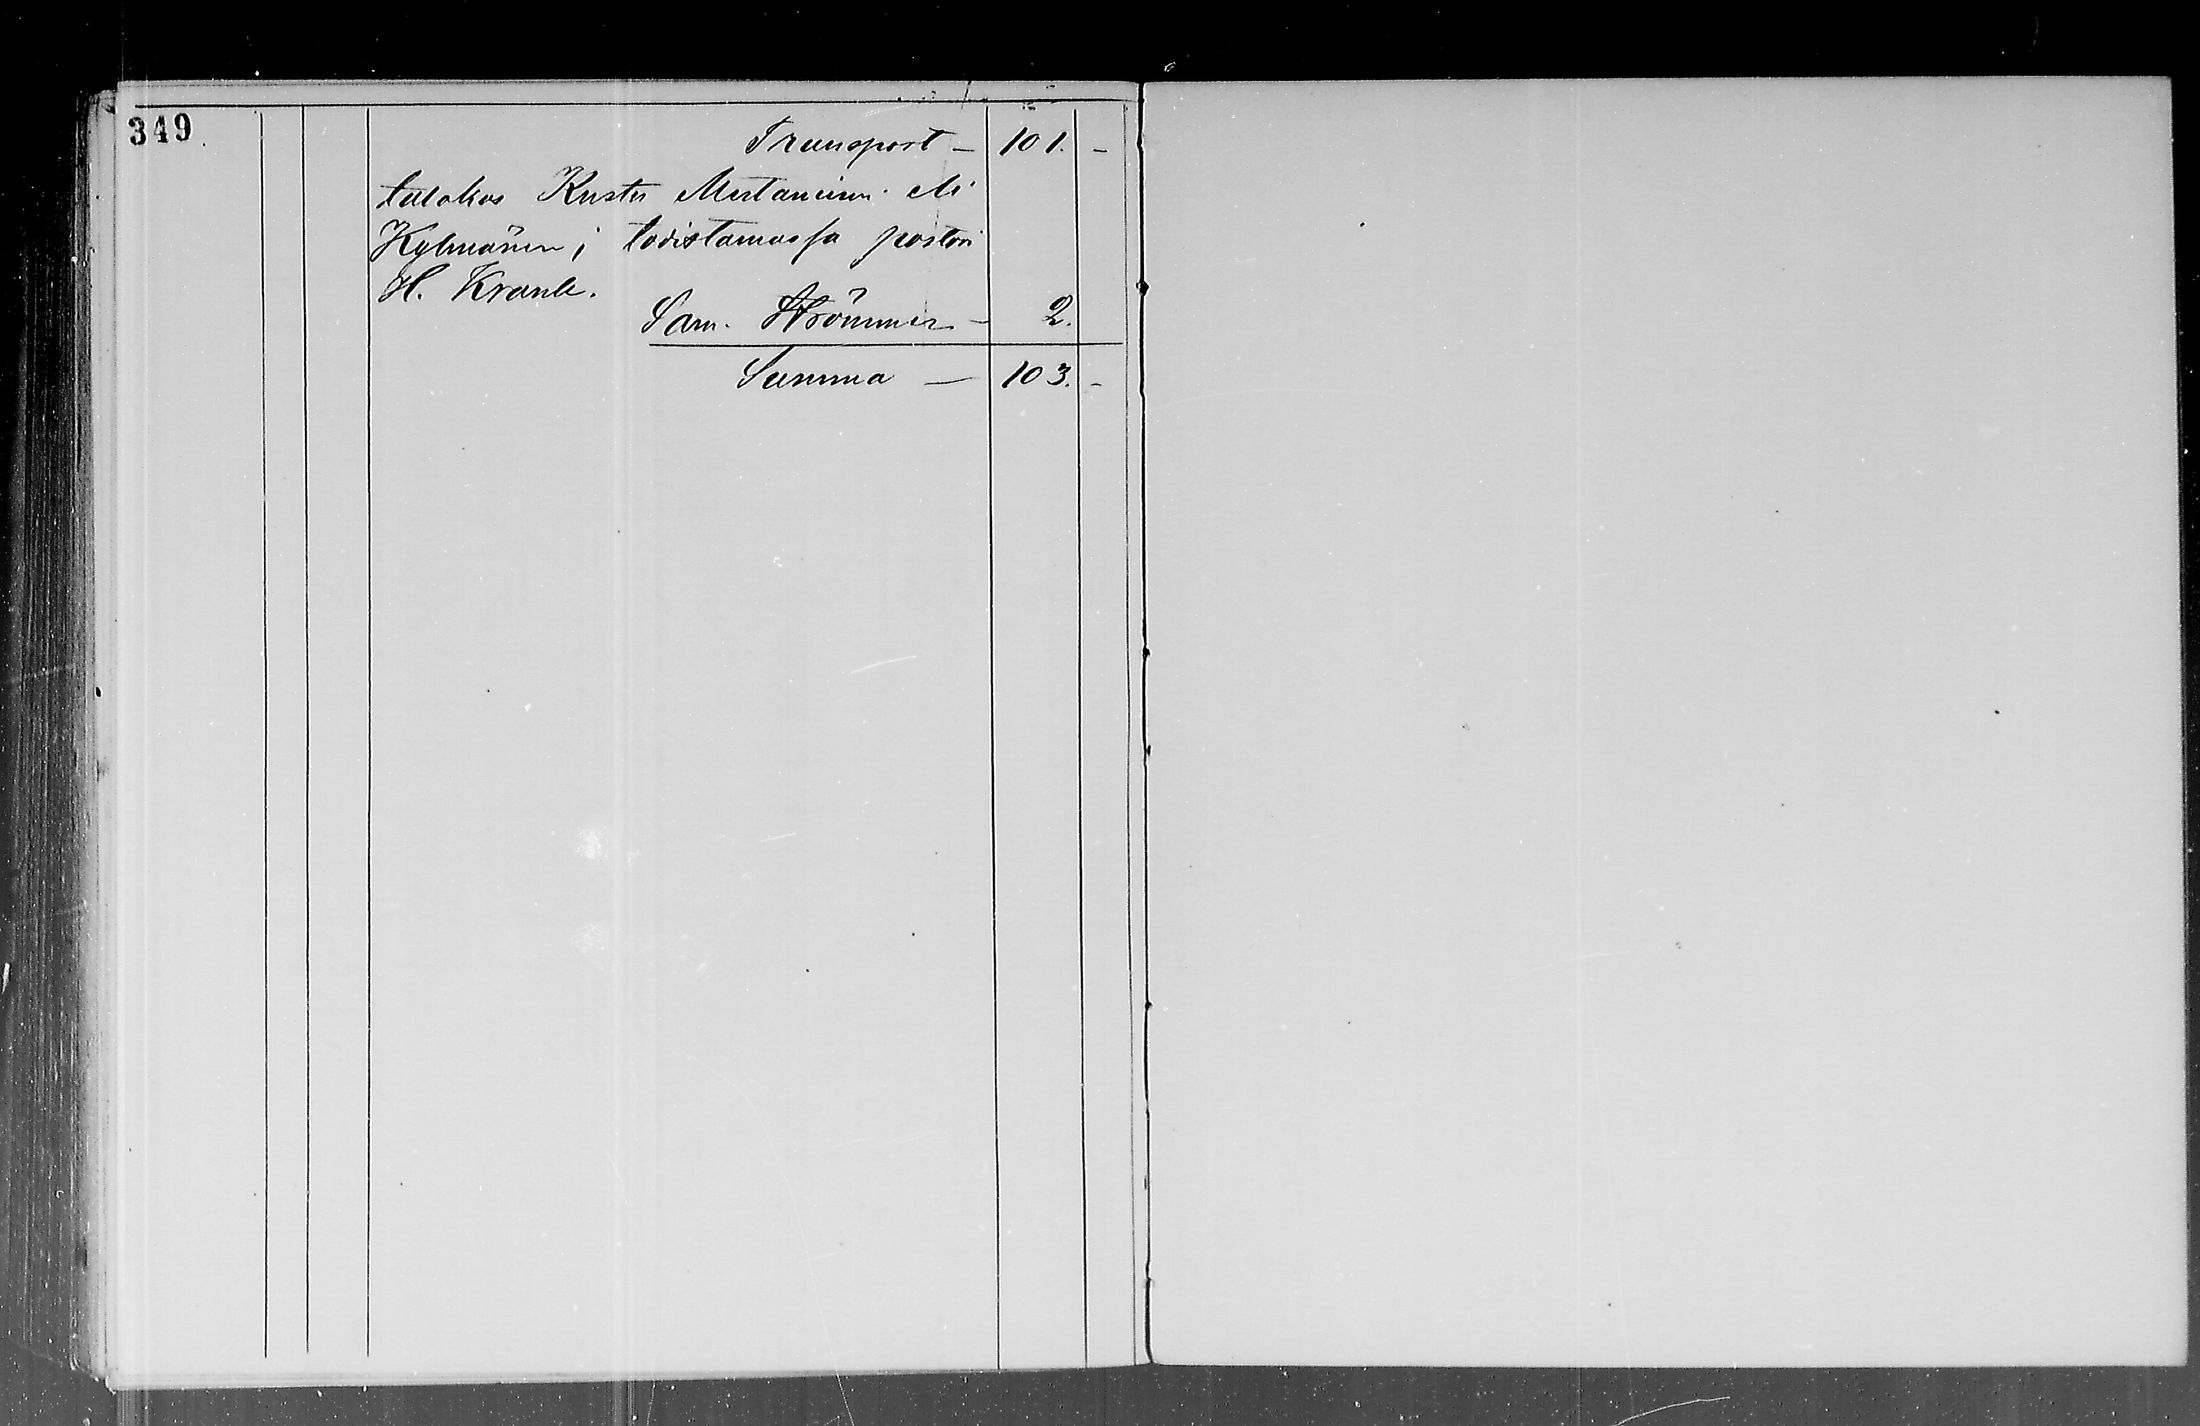 349
Transport – 101. –
talokas Kusta Mustanieni eli
Kylmänen; todistamassa pastori
H. Krank.
Sam. Strömmer – 2.
Summa – 103. –